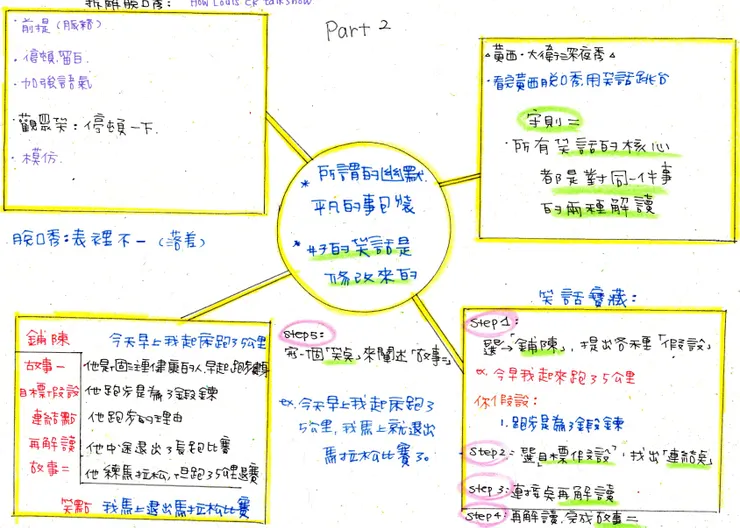 拆解脫口秀: How Louis CK talkshow
Part 2
・前提(脈絡)
・停頓.留白
・加強語氣
・觀眾笑:停頓一下.
・模仿.
脫口秀:表裡不一(落差)
黃西・大衛深夜秀
・看完黃西脫口秀,用笑話跳台
守則二
・所有笑話的核心
都是對同一件事
的兩種解讀
* 所謂的幽默.
平凡的事包裝
* 好的笑話是
修改來的
鋪陳 今天早上我起床跑35公里
故事一
目標假設 他跑步是為了鍛鍊
連結點 他跑步的理由
再解讀 他中途退出了長跑比賽
故事二 他練馬拉松,但跑35公里退賽
笑點 我馬上退出馬拉松比賽
step5:
寫一個「笑點」來闡述「故事二」
ex. 今天早上我起床跑3
5公里, 我馬上就退出
馬拉松比賽了。
笑話寶藏:
step1:
選→「鋪陳」, 提出各種「假設」
ex. 今早我起來跑35公里
你假設:
1.跑步是為了鍛鍊
step2: 選「目標假設」, 找出「連結點」
step3: 連接點再解讀
step4: 再解讀, 完成故事二